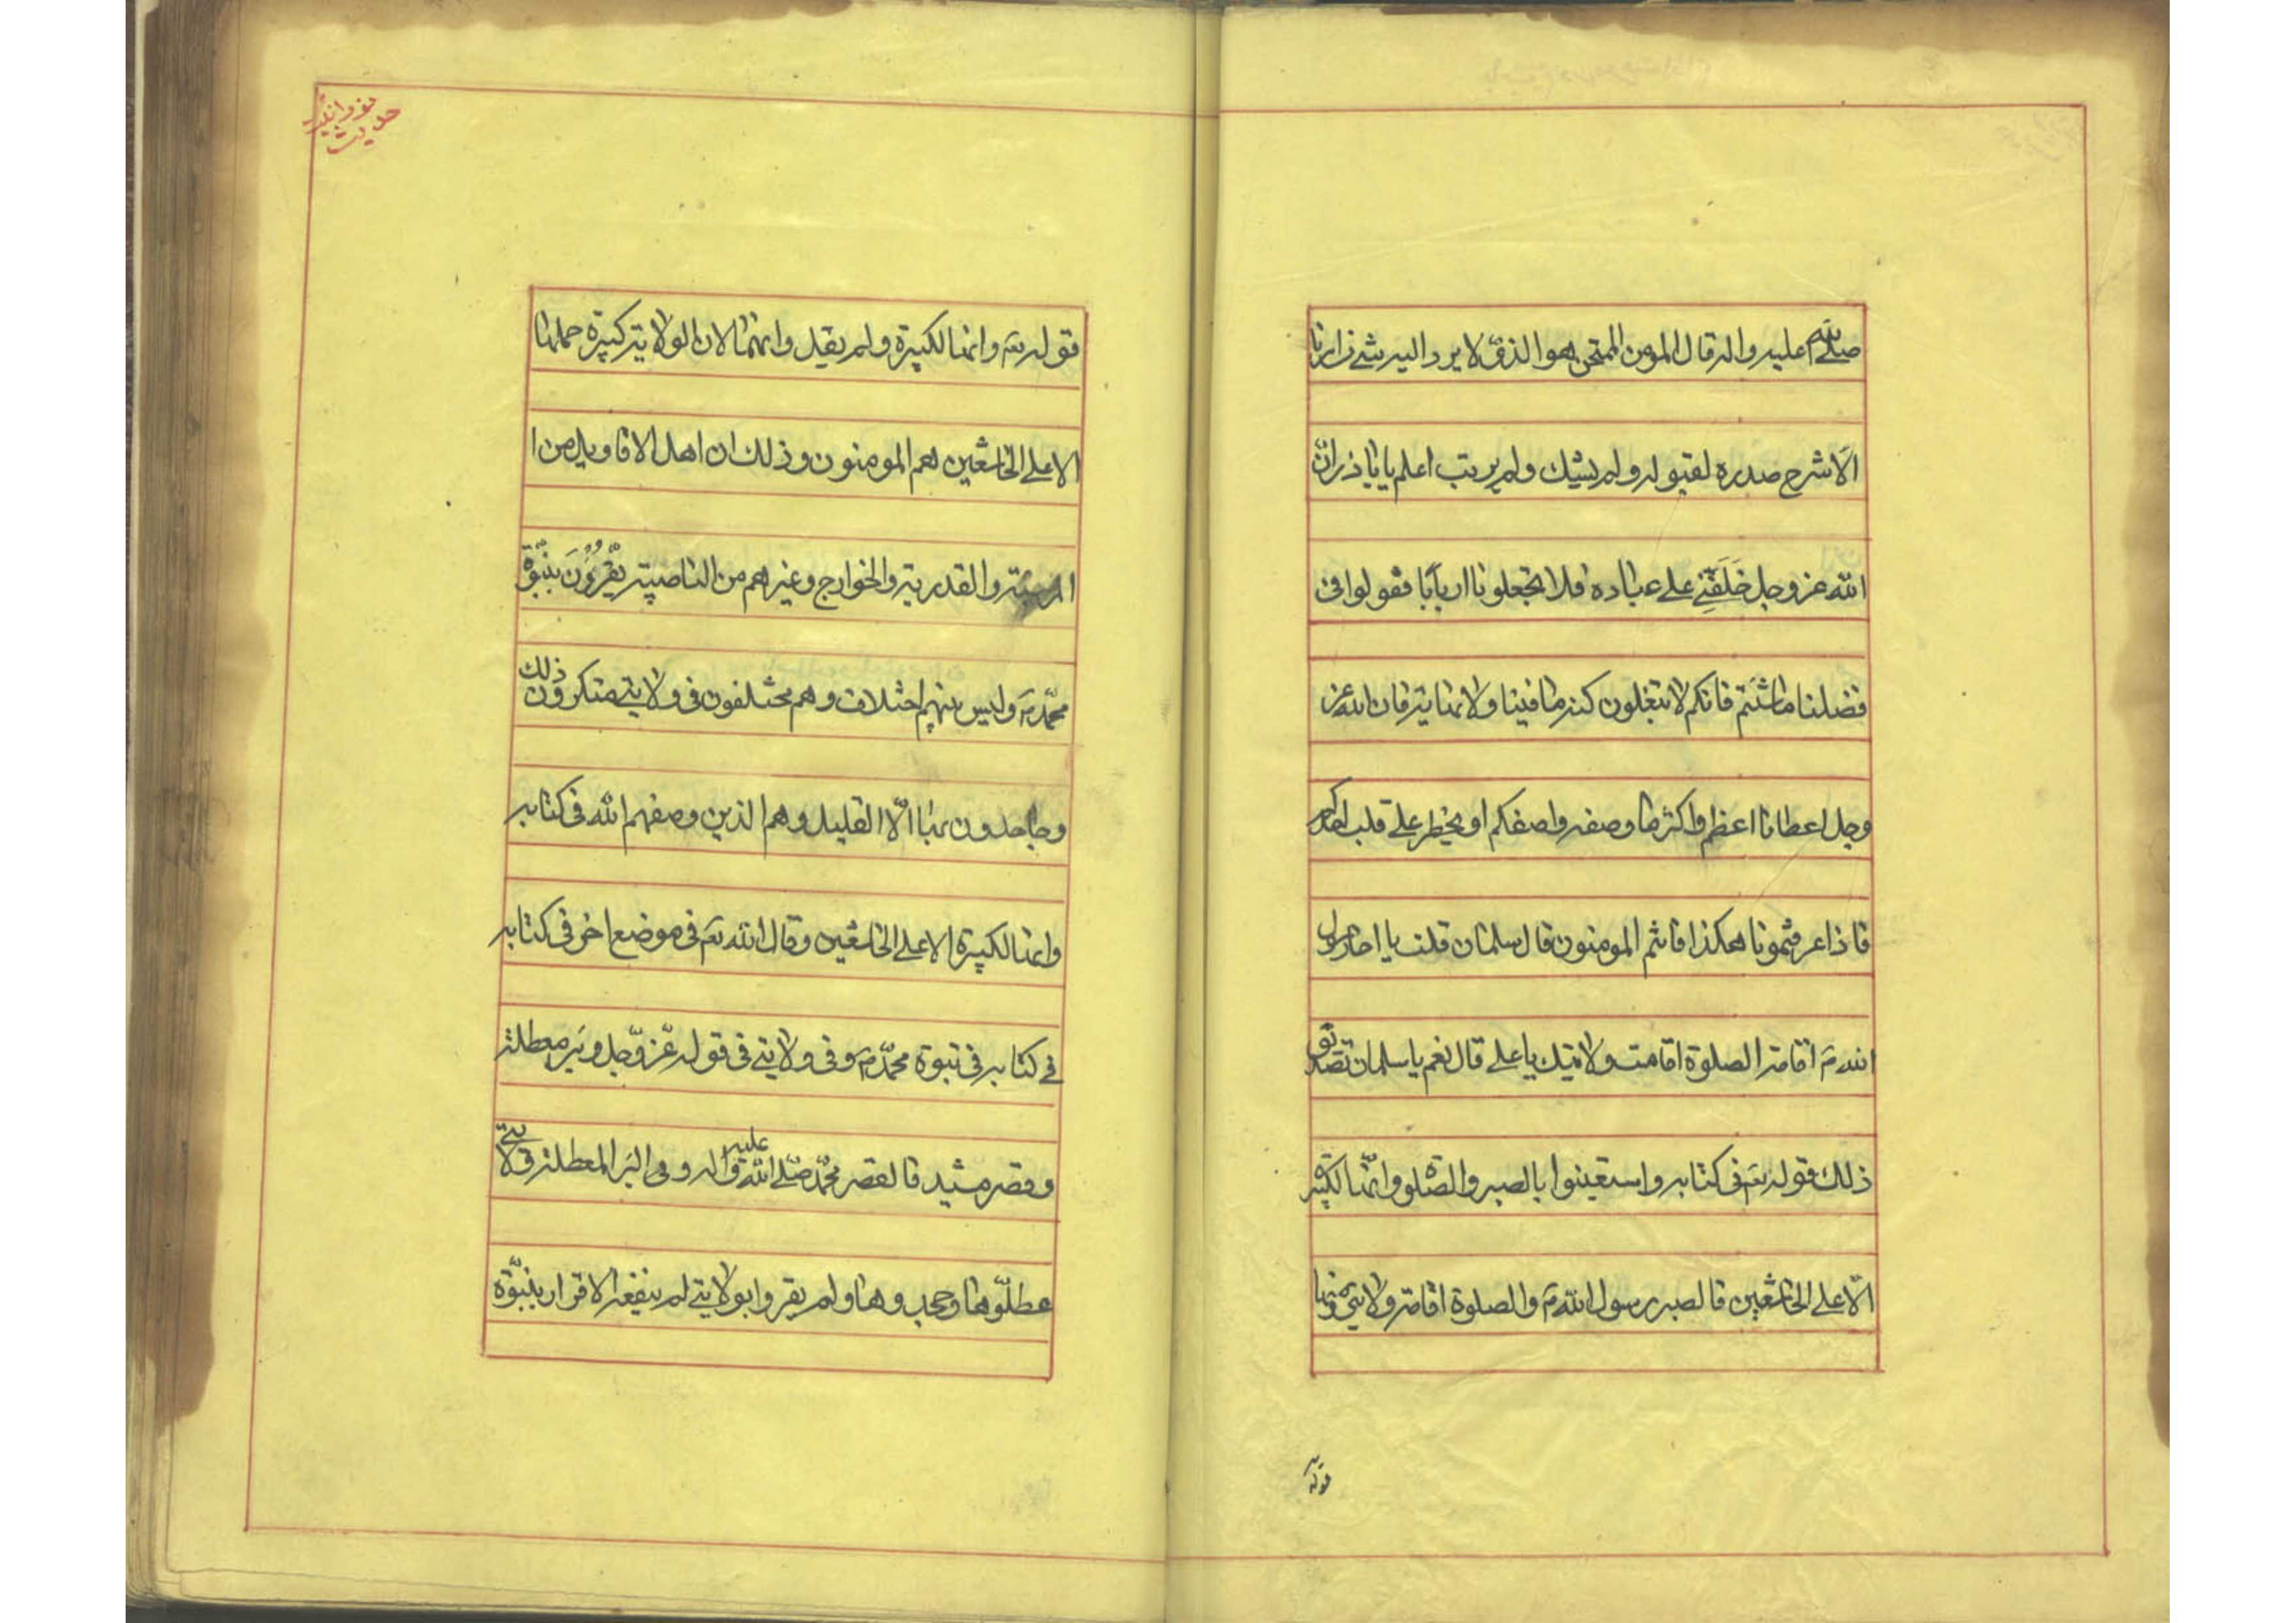 صلى الله عليه واله قال المومن الممتحن هو الذى لا يرد اليه شئ من امرنا
الا شرح صدره لقبوله ولم يشك ولم يرتب اعلم يا باذر ان
الله عز وجل خَلَقَنِى على عباده فلا تجعلونا اربابًا فقولوا فى
فضلنا ما شئتم فانكم لا تبغلون كنه ما فينا ولا نهايته فان الله عز
وجل اعطانا اعظم واكثر مما وصفه واصفكم او يخطر على قلب احدكم
فاذا عرفتمونا هكذا فانتم المومنون قال سلمان قلت يا اخا رسول
الله ص اقامة الصلوة اقامت ولايتك يا على قال نعم يا سلمان تصديق
ذلك قوله تع فى كتابه واستعينوا بالصبر والصلوة وانها لكبيرة
الّا على الخاشعين فالصبر رسول الله ص والصلوة اقامة ولايتى ومنها
قوله
نورانية
حديث
قوله تع وانها لكبيرة ولم يقل وانهما لان الولاية كبيرة حملها
الا على الخاشعين هم المومنون وذلك ان اهل الاقاويل من ا
المرجئة والقدرية والخوارج وغيرهم من الناصبية يقرّون بنبوّة
محمّد ص وليس بينهم اختلاف وهم مختلفون فى ولايتى منكرون ذلك
وجاحدون بها الّا القليل وهم الذين وصفهم الله فى كتابه
وانها لكبيرة الا على الخاشعين وقال الله تع فى موضع اخر فى كتابه
فى كتابه فى نبوة محمّد ص وفى ولايتى فى قوله عزّ وجل وبئر معطلة
وقصر مشيد فالقصر محمّد صلّى الله عليه واله وهى البئر المعطلة فى لا يتى
عطلّوها وجحدوها ولم يقروا بولايتى لم ينفعه الاقرار بنبوّة